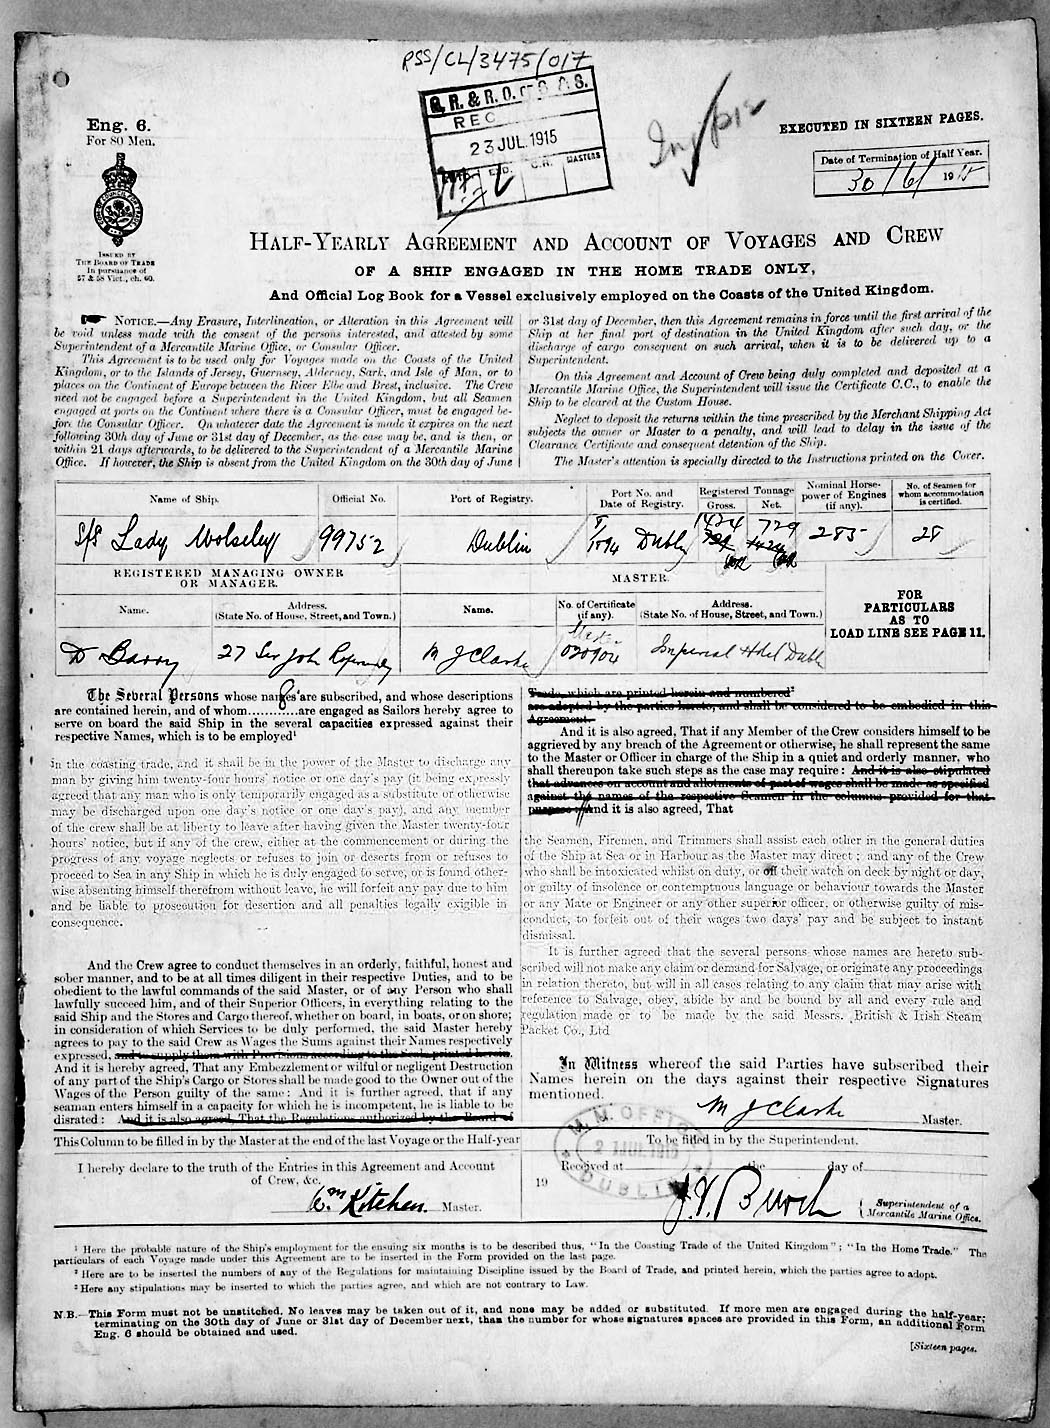 RSS/CL/3475/017
G. R. & R. O. OF S. & S.
REC
23 JUL. 1915
END.
C.R.
MASTERS
EXECUTED IN SIXTEEN PAGES.
Date of Termination of Half Year.
30/6/1915
Eng. 6.
For 80 Men.
ISSUED BY
THE BOARD OF TRADE
In pursuance of
57 & 58 Vict., ch. 60.
HALF-YEARLY AGREEMENT AND ACCOUNT OF VOYAGES AND CREW
OF A SHIP ENGAGED IN THE HOME TRADE ONLY,
And Official Log Book for a Vessel exclusively employed on the Coasts of the United Kingdom.
NOTICE.—Any Erasure, Interlineation, or Alteration in this Agreement will
be void unless made with the consent of the persons interested, and attested by some
Superintendent of a Mercantile Marine Office, or Consular Officer.
This Agreement is to be used only for Voyages made on the Coasts of the United
Kingdom, or to the Islands of Jersey, Guernsey, Alderney, Sark, and Isle of Man, or to
places on the Continent of Europe between the River Elbe and Brest, inclusive. The Crew
need not be engaged before a Superintendent in the United Kingdom, but all Seamen
engaged at ports on the Continent where there is a Consular Officer, must be engaged be-
fore the Consular Officer. On whatever date the Agreement is made it expires on the next
following 30th day of June or 31st day of December, as the case may be, and is then, or
within 21 days afterwards, to be delivered to the Superintendent of a Mercantile Marine
Office. If however, the Ship is absent from the United Kingdom on the 30th day of June
or 31st day of December, then this Agreement remains in force until the first arrival of the
Ship at her final port of destination in the United Kingdom after such day, or the
discharge of cargo consequent on such arrival, when it is to be delivered up to a
Superintendent.
On this Agreement and Account of Crew being duly completed and deposited at a
Mercantile Marine Office, the Superintendent will issue the Certificate C.C., to enable the
Ship to be cleared at the Custom House.
Neglect to deposit the returns within the time prescribed by the Merchant Shipping Act
subjects the owner or Master to a penalty, and will lead to delay in the issue of the
Clearance Certificate and consequent detention of the Ship.
The Master's attention is specially directed to the Instructions printed on the Cover.
Name of Ship.
Official No.
Port of Registry.
Port No. and
Date of Registry.
Registered Tonnage
Gross. Net.
Nominal Horse-
power of Engines
(if any).
No. of Seamen for
whom accommodation
is certified.
S/S Lady Wolseley
99752
Dublin
1/1894 Dublin
1424
729
729
1424
285
28
REGISTERED MANAGING OWNER
OR MANAGER.
MASTER.
FOR
PARTICULARS
AS TO
LOAD LINE SEE PAGE 11.
Name.
Address.
(State No. of House, Street, and Town.)
Name.
No. of Certificate
(if any).
Address.
(State No. of House, Street, and Town.)
D Barry
27 Sir John Rogerson
M J Clarke
020904
Imperial Hotel Dublin
The Several Persons whose names are subscribed, and whose descriptions
are contained herein, and of whom 8 are engaged as Sailors hereby agree to
serve on board the said Ship in the several capacities expressed against their
respective Names, which is to be employed¹
in the coasting trade, and it shall be in the power of the Master to discharge any
man by giving him twenty-four hours' notice or one day's pay (it being expressly
agreed that any man who is only temporarily engaged as a substitute or otherwise
may be discharged upon one day's notice or one day's pay), and any member
of the crew shall be at liberty to leave after having given the Master twenty-four
hours' notice, but if any of the crew, either at the commencement or during the
progress of any voyage neglects or refuses to join or deserts from or refuses to
proceed to Sea in any Ship in which he is duly engaged to serve, or is found other-
wise absenting himself therefrom without leave, he will forfeit any pay due to him
and be liable to prosecution for desertion and all penalties legally exigible in
consequence.
And the Crew agree to conduct themselves in an orderly, faithful, honest and
sober manner, and to be at all times diligent in their respective Duties, and to be
obedient to the lawful commands of the said Master, or of any Person who shall
lawfully succeed him, and of their Superior Officers, in everything relating to the
said Ship and the Stores and Cargo thereof, whether on board, in boats, or on shore;
in consideration of which Services to be duly performed, the said Master hereby
agrees to pay to the said Crew as Wages the Sums against their Names respectively
expressed, and to supply them with Provisions according to the Scale printed herein.
And it is hereby agreed, That any Embezzlement or wilful or negligent Destruction
of any part of the Ship's Cargo or Stores shall be made good to the Owner out of the
Wages of the Person guilty of the same: And it is further agreed, that if any
seaman enters himself in a capacity for which he is incompetent, he is liable to be
disrated: And it is also agreed, That the Regulations authorized by the Board of
Trade, which are printed herein and numbered²
are adopted by the parties hereto, and shall be considered to be embodied in this
Agreement.
And it is also agreed, That if any Member of the Crew considers himself to be
aggrieved by any breach of the Agreement or otherwise, he shall represent the same
to the Master or Officer in charge of the Ship in a quiet and orderly manner, who
shall thereupon take such steps as the case may require: And it is also stipulated
that advances on account and allotments of part of wages shall be made as specified
against the names of the respective Seamen in the columns provided for that
purpose: And it is also agreed, That
the Seamen, Firemen, and Trimmers shall assist each other in the general duties
of the Ship at Sea or in Harbour as the Master may direct; and any of the Crew
who shall be intoxicated whilst on duty, or off their watch on deck by night or day,
or guilty of insolence or contemptuous language or behaviour towards the Master
or any Mate or Engineer or any other superior officer, or otherwise guilty of mis-
conduct, to forfeit out of their wages two days' pay and be subject to instant
dismissal.
It is further agreed that the several persons whose names are hereto sub-
scribed will not make any claim or demand for Salvage, or originate any proceedings
in relation thereto, but will in all cases relating to any claim that may arise with
reference to Salvage, obey, abide by and be bound by all and every rule and
regulation made or to be made by the said Messrs. British & Irish Steam
Packet Co., Ltd
In Witness whereof the said Parties have subscribed their
Names herein on the days against their respective Signatures
mentioned.
M J Clarke Master.
This Column to be filled in by the Master at the end of the last Voyage or the Half-year
I hereby declare to the truth of the Entries in this Agreement and Account
of Crew, &c.
Wm Kitchen. Master.
M. M. OFFICE
21 JUL 1915
DUBLIN
To be filled in by the Superintendent.
Received at the day of
19
Superintendent of a
Mercantile Marine Office.
¹ Here the probable nature of the Ship's employment for the ensuing six months is to be described thus, "In the Coasting Trade of the United Kingdom"; "In the Home Trade." The
particulars of each Voyage made under this Agreement are to be inserted in the Form provided on the last page.
² Here are to be inserted the numbers of any of the Regulations for maintaining Discipline issued by the Board of Trade, and printed herein, which the parties agree to adopt.
³ Here any stipulations may be inserted to which the parties agree, and which are not contrary to Law.
N.B.—This Form must not be unstitched. No leaves may be taken out of it, and none may be added or substituted. If more men are engaged during the half-year;
terminating on the 30th day of June or 31st day of December next, than the number for whose signatures spaces are provided in this Form, an additional Form
Eng. 6 should be obtained and used.
[Sixteen pages.